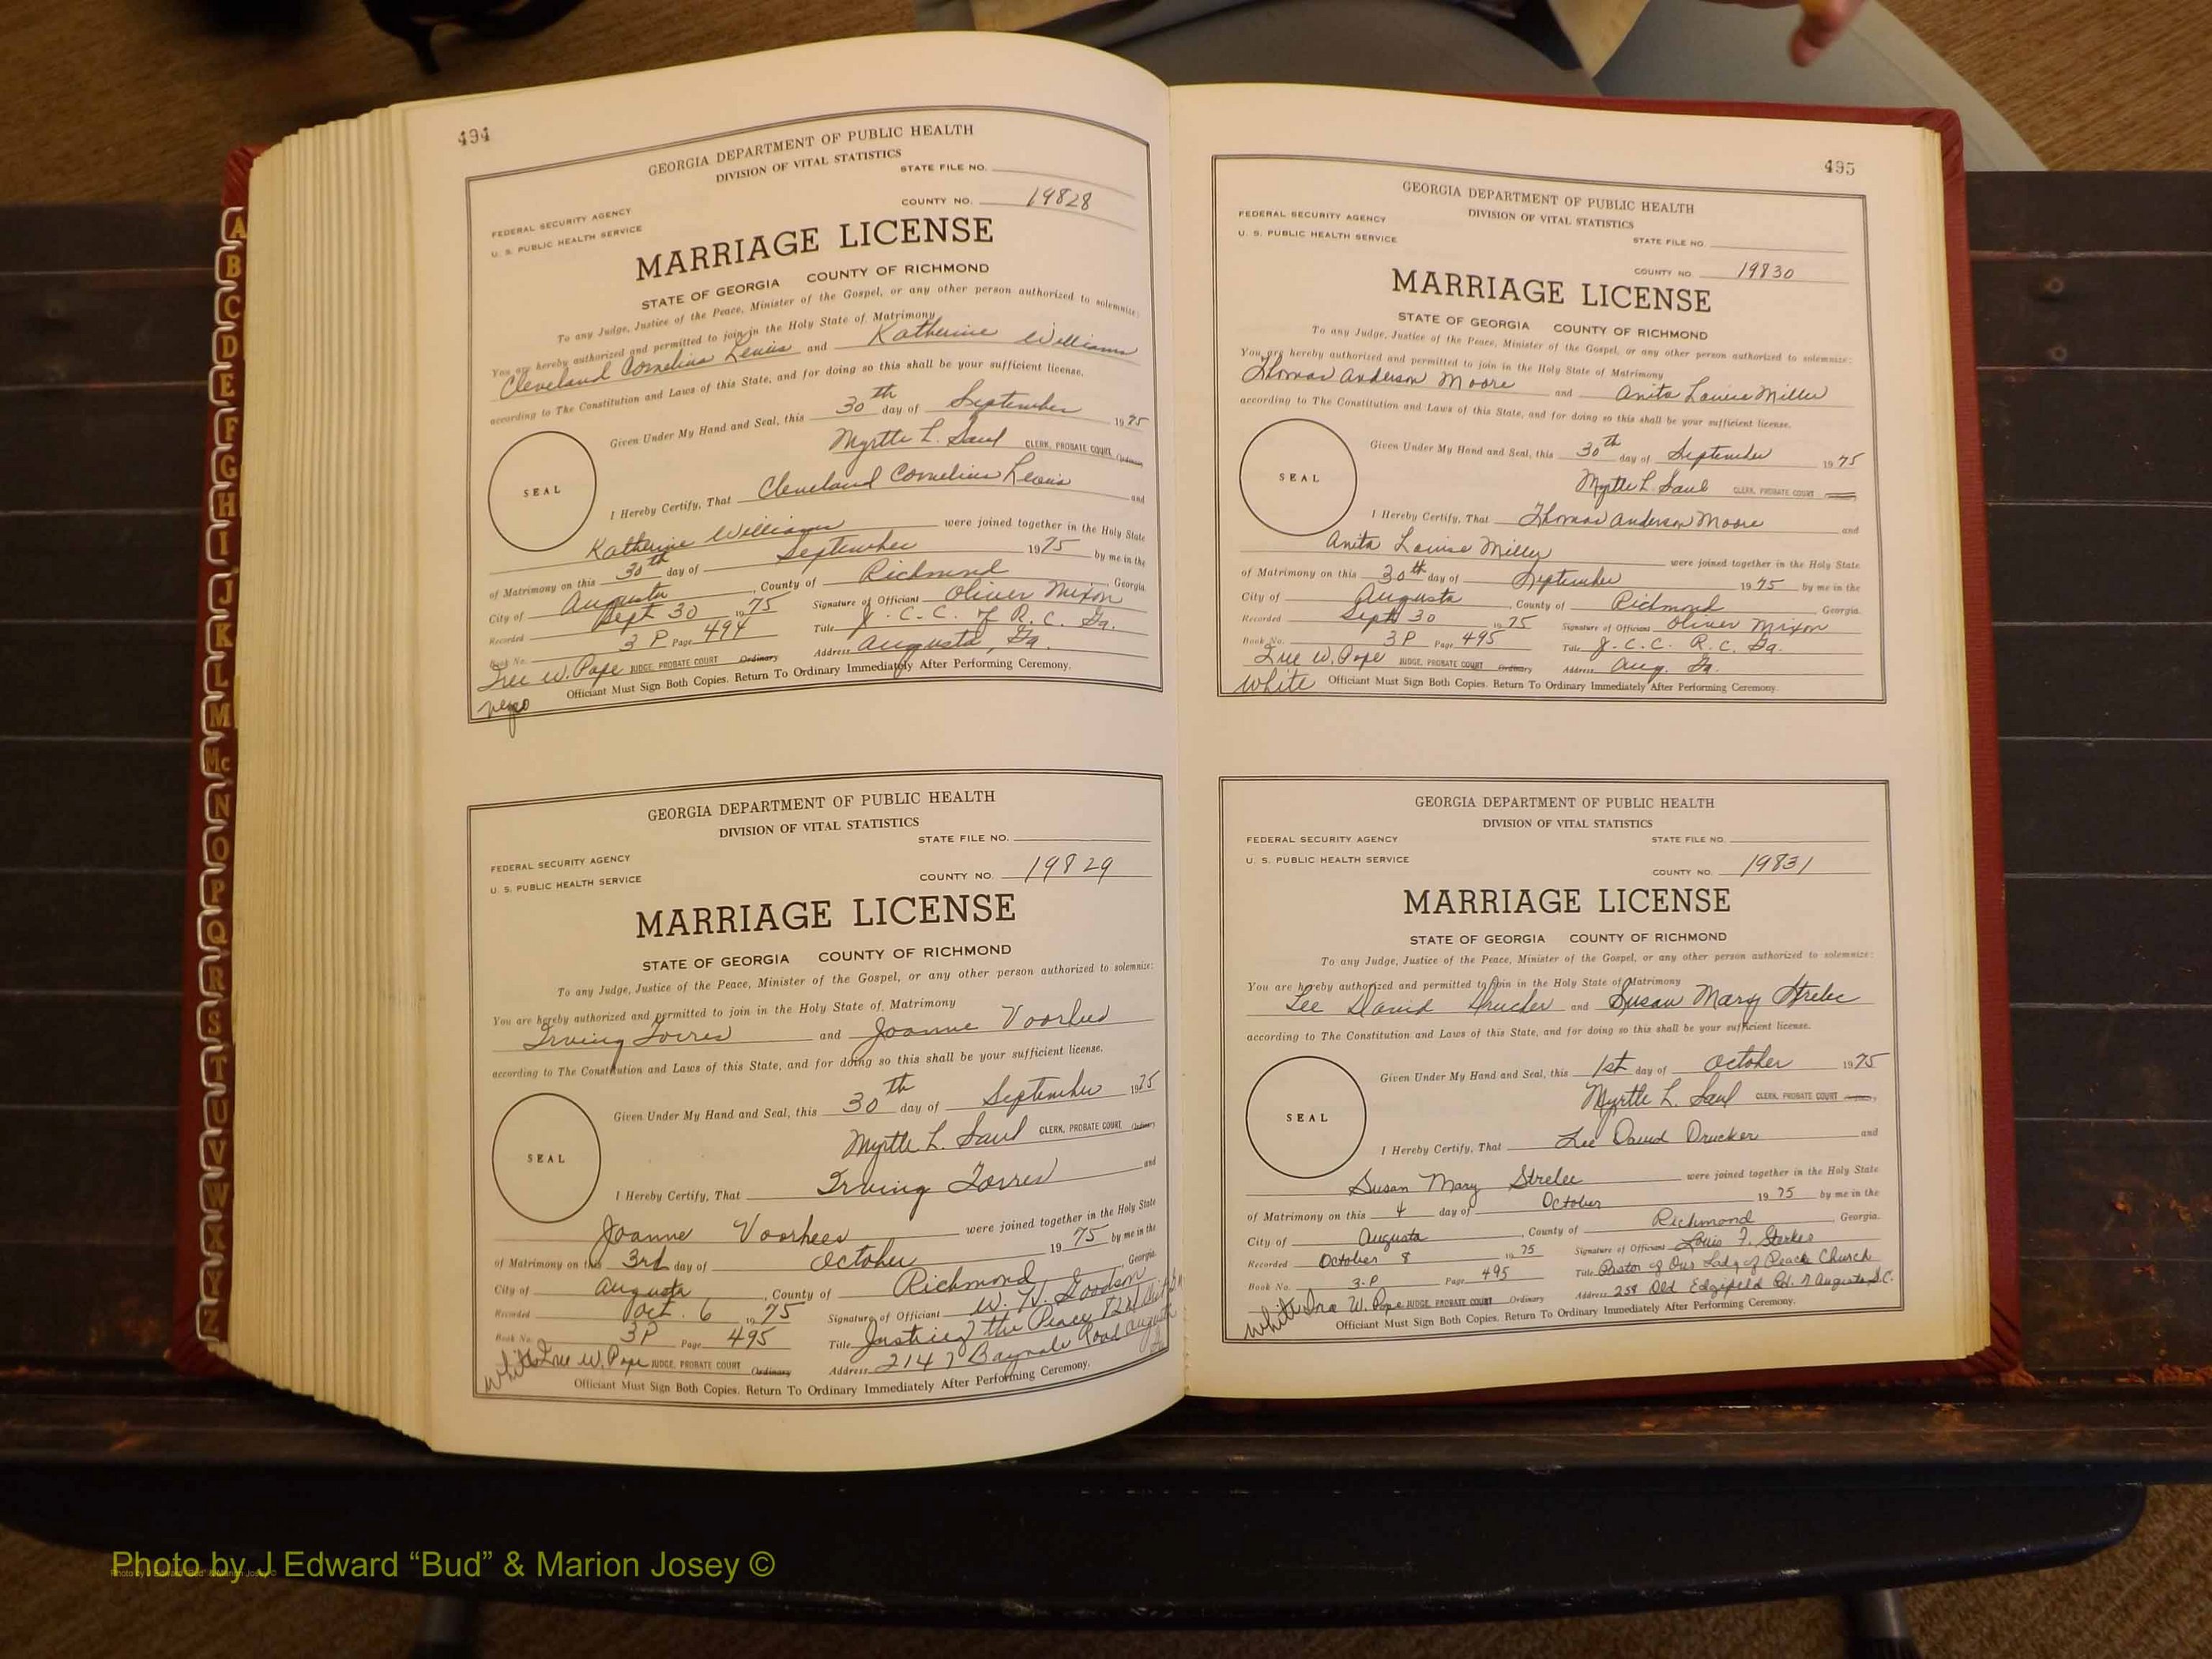 494
GEORGIA DEPARTMENT OF PUBLIC HEALTH
DIVISION OF VITAL STATISTICS
STATE FILE NO.
COUNTY NO. 19828
FEDERAL SECURITY AGENCY
U. S. PUBLIC HEALTH SERVICE
MARRIAGE LICENSE
STATE OF GEORGIA COUNTY OF RICHMOND
To any Judge, Justice of the Peace, Minister of the Gospel, or any other person authorized to solemnize:
You are hereby authorized and permitted to join in the Holy State of Matrimony
Cleveland Cornelius Lewis and Katherine Williams
according to The Constitution and Laws of this State, and for doing so this shall be your sufficient license.
Given Under My Hand and Seal, this 30th day of September 1975
Myrtle L. Saul CLERK, PROBATE COURT Ordinary
SEAL
I Hereby Certify, That Cleveland Cornelius Lewis and
Katherine Williams were joined together in the Holy State
of Matrimony on this 30th day of September 1975 by me in the
City of Augusta, County of Richmond, Georgia.
Recorded Sept 30 1975 Signature of Officiant Oliver Mixon
Book No. 3 P Page 494 Title J. C. C. of R. C. Ga.
Ire W. Pope JUDGE, PROBATE COURT Ordinary Address Augusta, Ga.
Officiant Must Sign Both Copies. Return To Ordinary Immediately After Performing Ceremony.
negro
GEORGIA DEPARTMENT OF PUBLIC HEALTH
DIVISION OF VITAL STATISTICS
STATE FILE NO.
FEDERAL SECURITY AGENCY
U. S. PUBLIC HEALTH SERVICE
COUNTY NO. 19829
MARRIAGE LICENSE
STATE OF GEORGIA COUNTY OF RICHMOND
To any Judge, Justice of the Peace, Minister of the Gospel, or any other person authorized to solemnize:
You are hereby authorized and permitted to join in the Holy State of Matrimony
Irving Torres and Joanne Voorhees
according to The Constitution and Laws of this State, and for doing so this shall be your sufficient license.
Given Under My Hand and Seal, this 30th day of September 1975
Myrtle L. Saul CLERK, PROBATE COURT Ordinary
SEAL
I Hereby Certify, That Irving Torres and
Joanne Voorhees were joined together in the Holy State
of Matrimony on this 3rd day of October 1975 by me in the
City of Augusta, County of Richmond, Georgia.
Recorded Oct. 6 1975 Signature of Officiant W. H. Goodson
Book No. 3P Page 495 Title Justice of the Peace
white Ire W. Pope JUDGE, PROBATE COURT Ordinary Address 2147 Road Augusta
Officiant Must Sign Both Copies. Return To Ordinary Immediately After Performing Ceremony.
495
GEORGIA DEPARTMENT OF PUBLIC HEALTH
DIVISION OF VITAL STATISTICS
FEDERAL SECURITY AGENCY
U. S. PUBLIC HEALTH SERVICE
STATE FILE NO.
COUNTY NO. 19830
MARRIAGE LICENSE
STATE OF GEORGIA COUNTY OF RICHMOND
To any Judge, Justice of the Peace, Minister of the Gospel, or any other person authorized to solemnize:
You are hereby authorized and permitted to join in the Holy State of Matrimony
Thomas Anderson Moore and Anita Louise Miller
according to The Constitution and Laws of this State, and for doing so this shall be your sufficient license.
Given Under My Hand and Seal, this 30th day of September 1975
Myrtle L. Saul CLERK, PROBATE COURT
SEAL
I Hereby Certify, That Thomas Anderson Moore and
Anita Louise Miller were joined together in the Holy State
of Matrimony on this 30th day of September 1975 by me in the
City of Augusta, County of Richmond, Georgia.
Recorded Sept 30 1975 Signature of Officiant Oliver Mixon
Book No. 3P Page 495 Title J. C. C. R. C. Ga.
Ire W. Pope JUDGE, PROBATE COURT Ordinary Address Aug. Ga.
white Officiant Must Sign Both Copies. Return To Ordinary Immediately After Performing Ceremony.
GEORGIA DEPARTMENT OF PUBLIC HEALTH
DIVISION OF VITAL STATISTICS
FEDERAL SECURITY AGENCY
STATE FILE NO.
U. S. PUBLIC HEALTH SERVICE
COUNTY NO. 19831
MARRIAGE LICENSE
STATE OF GEORGIA COUNTY OF RICHMOND
To any Judge, Justice of the Peace, Minister of the Gospel, or any other person authorized to solemnize:
You are hereby authorized and permitted to join in the Holy State of Matrimony
Lee David Drucker and Susan Mary Strelec
according to The Constitution and Laws of this State, and for doing so this shall be your sufficient license.
Given Under My Hand and Seal, this 1st day of October 1975
Myrtle L. Saul CLERK, PROBATE COURT
SEAL
I Hereby Certify, That Lee David Drucker and
Susan Mary Strelec were joined together in the Holy State
of Matrimony on this 4 day of October 1975 by me in the
City of Augusta, County of Richmond, Georgia.
Recorded October 8 1975 Signature of Officiant Louis F. Sterker
Book No. 3-P Page 495 Title Pastor of Our Lady of Peace Church
white Ira W. Pope JUDGE, PROBATE COURT Ordinary Address 258 Old Edgefield Rd. N Augusta, S.C.
Officiant Must Sign Both Copies. Return To Ordinary Immediately After Performing Ceremony.
A
B
C
D
E
F
G
H
I
J
K
L
M
Mc
N
O
P
Q
R
S
T
U
V
W
X
Y
Z
Photo by J Edward “Bud” & Marion Josey ©
Photo by J Edward "Bud" & Marion Josey ©